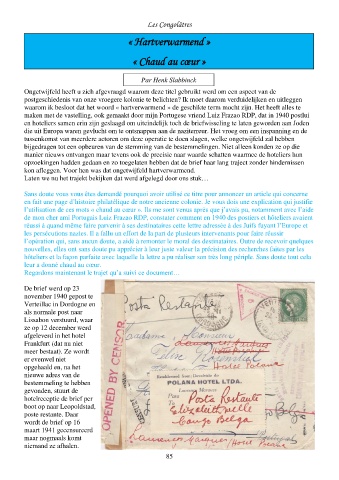 Les Congolâtres
« Hartverwarmend »
« Chaud au cœur »
Par Henk Slabbinck
Ongetwijfeld heeft u zich afgevraagd waarom deze titel gebruikt werd om een aspect van de
postgeschiedenis van onze vroegere kolonie te belichten? Ik moet daarom verduidelijken en uitleggen
waarom ik besloot dat het woord « hartverwarmend » de geschikte term mocht zijn. Het heeft alles te
maken met de vaststelling, ook gemaakt door mijn Portugese vriend Luiz Frazao RDP, dat in 1940 postlui
en hoteliers samen erin zijn geslaagd om uiteindelijk toch de briefwisseling te laten geworden aan Joden
die uit Europa waren gevlucht om te ontsnappen aan de naziterreur. Het vroeg om een inspanning en de
tussenkomst van meerdere actoren om deze operatie te doen slagen, welke ongetwijfeld zal hebben
bijgedragen tot een opbeuren van de stemming van de bestemmelingen. Niet alleen konden ze op die
manier nieuws ontvangen maar tevens ook de precisie naar waarde schatten waarmee de hoteliers hun
opzoekingen hadden gedaan en zo toegelaten hebben dat de brief haar lang traject zonder hindernissen
kon afleggen. Voor hen was dat ongetwijfeld hartverwarmend.
Laten we nu het trajekt bekijken dat werd afgelegd door ons stuk…
Sans doute vous vous êtes demandé pourquoi avoir utilisé ce titre pour annoncer un article qui concerne
en fait une page d'histoire philatélique de notre ancienne colonie. Je vous dois une explication qui justifie
l'utilisation de ces mots « chaud au cœur ». Ils me sont venus après que j'avais pu, notamment avec l'aide
de mon cher ami Portugais Luiz Frazao RDP, constater comment en 1940 des postiers et hôteliers avaient
réussi à quand même faire parvenir à ses destinataires cette lettre adressée à des Juifs fuyant l'Europe et
les persécutions nazies. Il a fallu un effort de la part de plusieurs intervenants pour faire réussir
l'opération qui, sans aucun doute, a aidé à remonter le moral des destinataires. Outre de recevoir quelques
nouvelles, elles ont sans doute pu apprécier à leur juste valeur la précision des recherches faites par les
hôteliers et la façon parfaite avec laquelle la lettre a pu réaliser son très long périple. Sans doute tout cela
leur a donné chaud au cœur.
Regardons maintenant le trajet qu'a suivi ce document…
De brief werd op 23
november 1940 gepost te
Verteillac in Dordogne en
als normale post naar
Lissabon verstuurd, waar
ze op 12 december werd
afgeleverd in het hotel
Frankfurt (dat nu niet
meer bestaat). Ze wordt
er evenwel niet
opgehaald en, na het
nieuwe adres van de
bestemmeling te hebben
gevonden, stuurt de
hotelreceptie de brief per
boot naar Leopoldstad,
poste restante. Daar
wordt de brief op 16
maart 1941 gecensureerd
maar nogmaals komt
niemand ze afhalen.
OPENED BY CENSOR
Posta Restante
POLANA HOTEL LTDA.
Lourenço Marques
Posta Restante
Elizabethville
Congo Belga
85